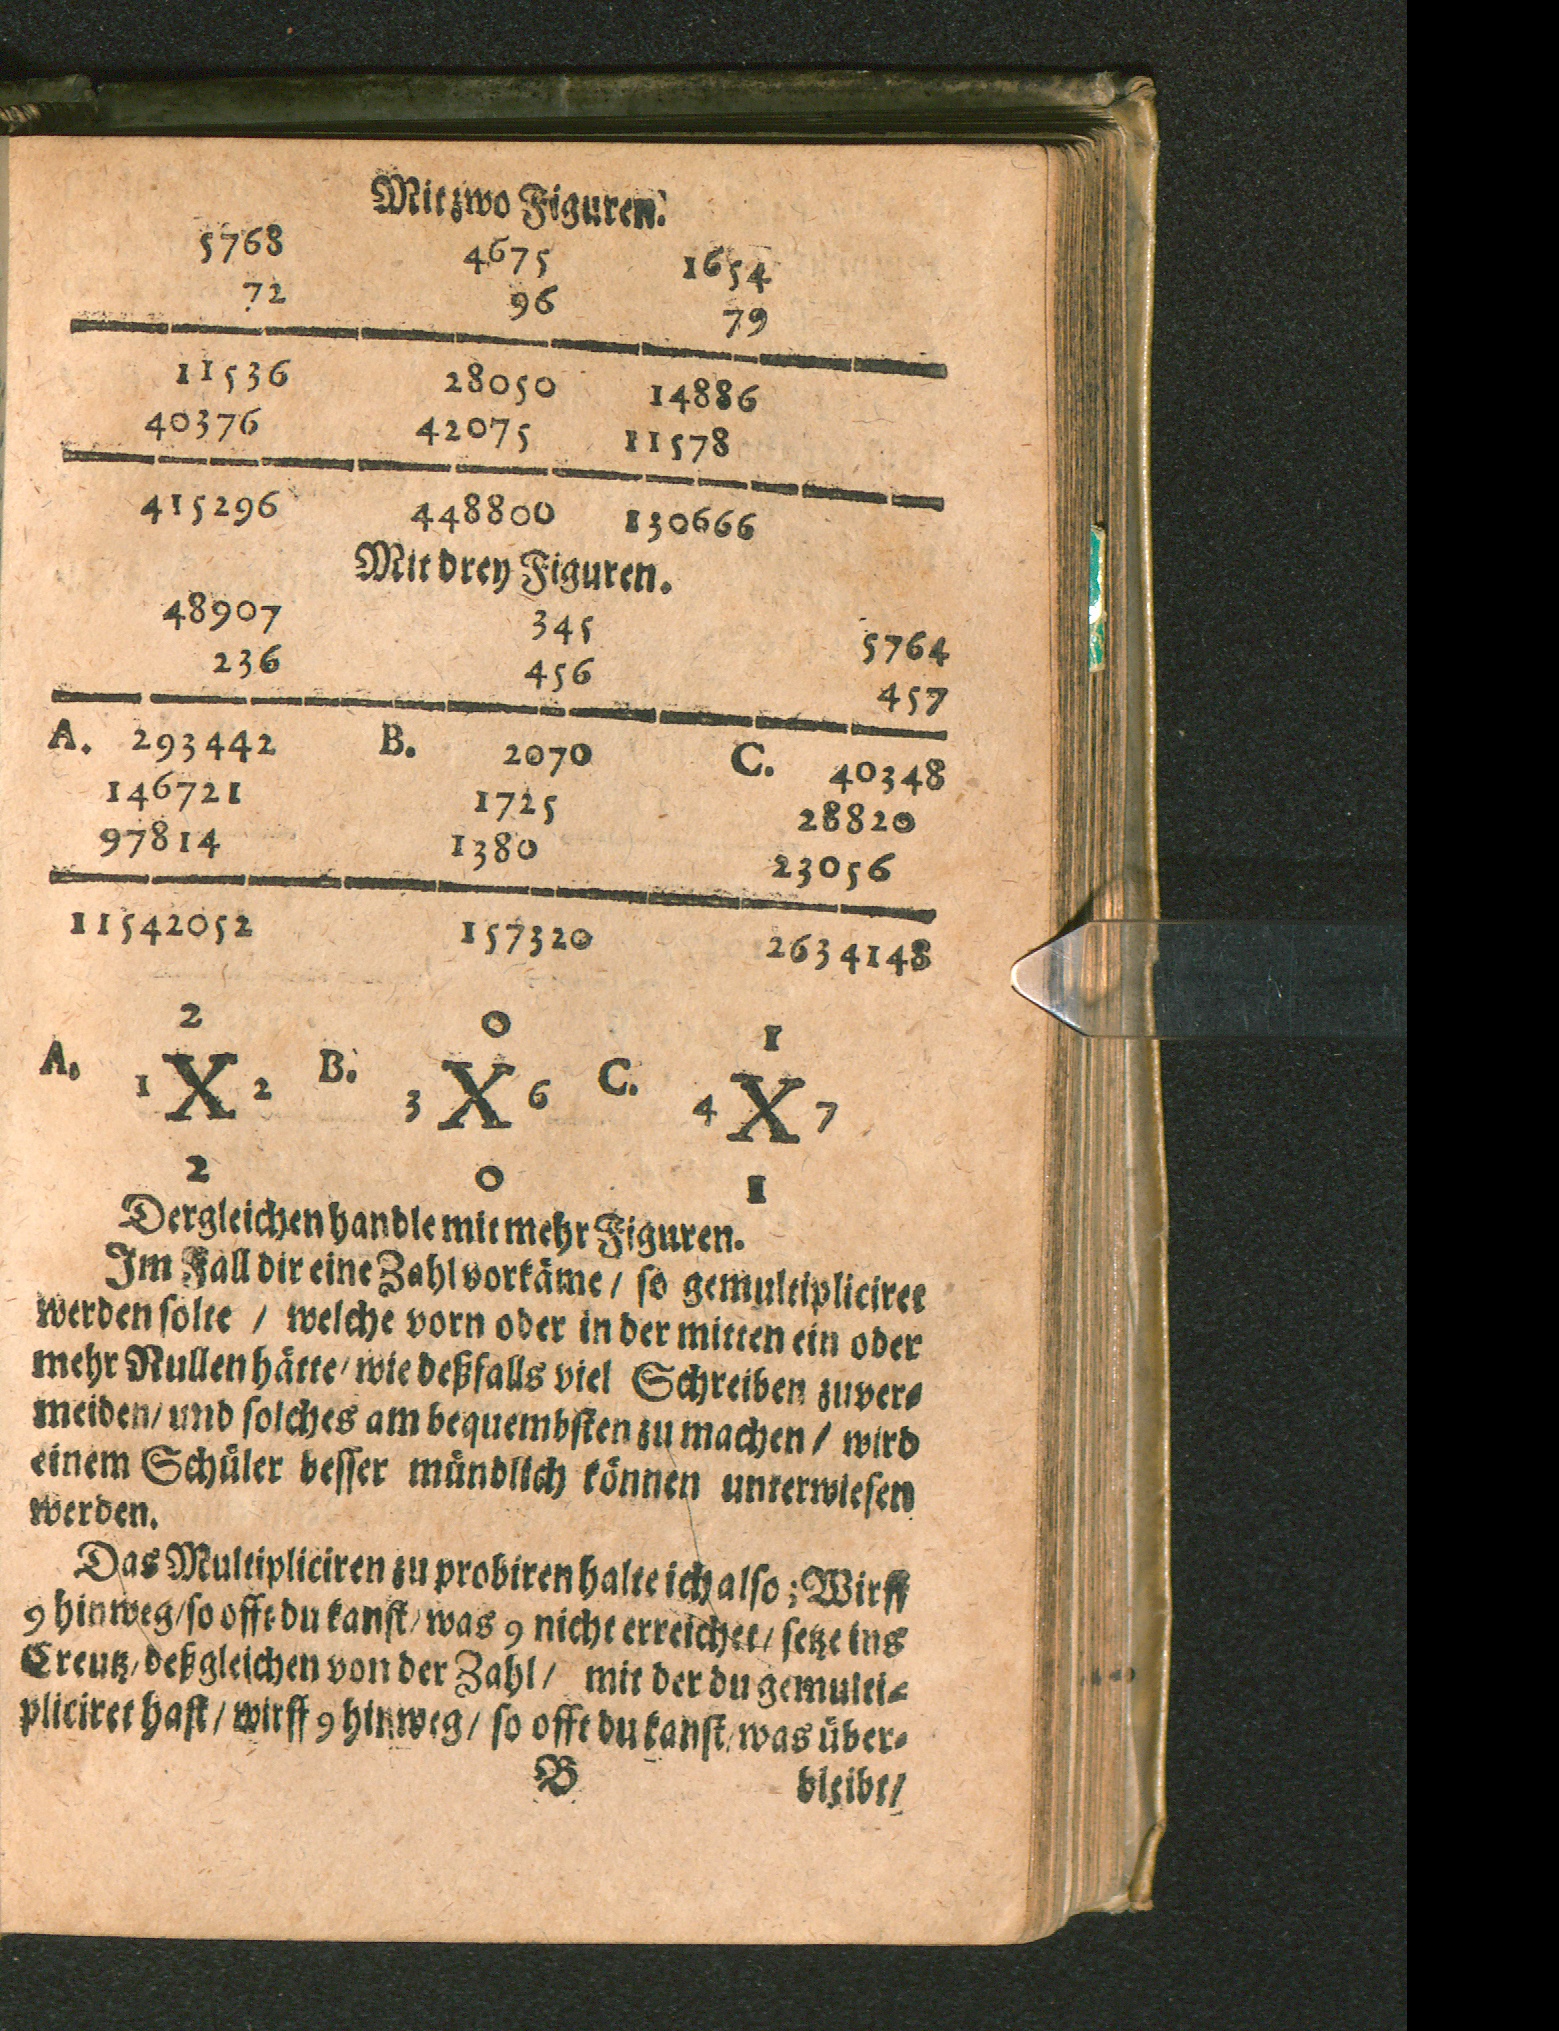 Mit zwo Figuren.
5768 4675 1654
72 96 79
11536 28050 14886
40376 42075 11578
415296 448800 130666
Mit drey Figuren.
48907 345 5764
236 456 457
A. 293442 B. 2070 C. 40348
146721 1725 28820
97814 1380 23056
11542052 157320 2634148
2 0 1
A. 1 X 2 B. 3 X 6 C. 4 X 7
2 0 1
Dergleichen handle mit mehr Figuren.
Im Fall dir eine Zahl vorkäme / so gemultipliciret
werden solte / welche vorn oder in der mitten ein oder
mehr Nullen hätte / wie deßfalls viel Schreiben zuver⸗
meiden / und solches am bequembsten zu machen / wird
einem Schüler besser mündlich können unterwiesen
werden.
Das Multipliciren zu probiren halte ich also; Wirff
9 hinweg / so offt du kanst / was 9 nicht erreichet / setze ins
Creutz / deßgleichen von der Zahl / mit der du gemulti⸗
pliciret hast / wirff 9 hinweg / so offt du kanst / was über⸗
B bleibt /